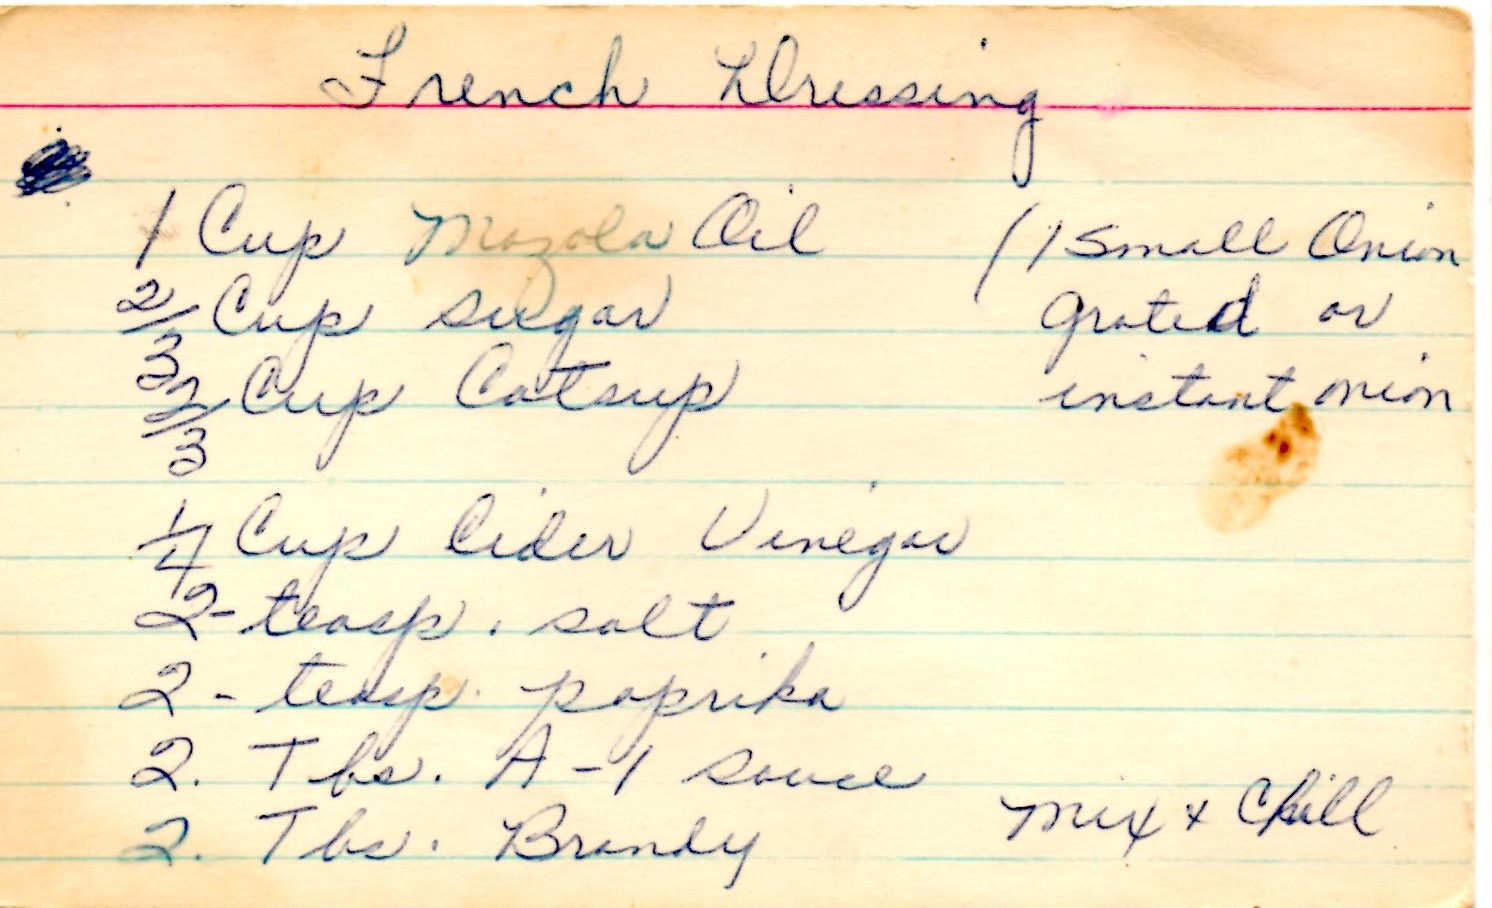 French Dressing
1 Cup Mazola Oil
2/3 Cup sugar
2/3 Cup Catsup
1/4 Cup Cider Vinegar
2 - teasp. salt
2 - teasp. paprika
2. Tbs. A-1 sauce
2. Tbs. Brandy
(1 small Onion
grated or
instant onion
Mix + Chill